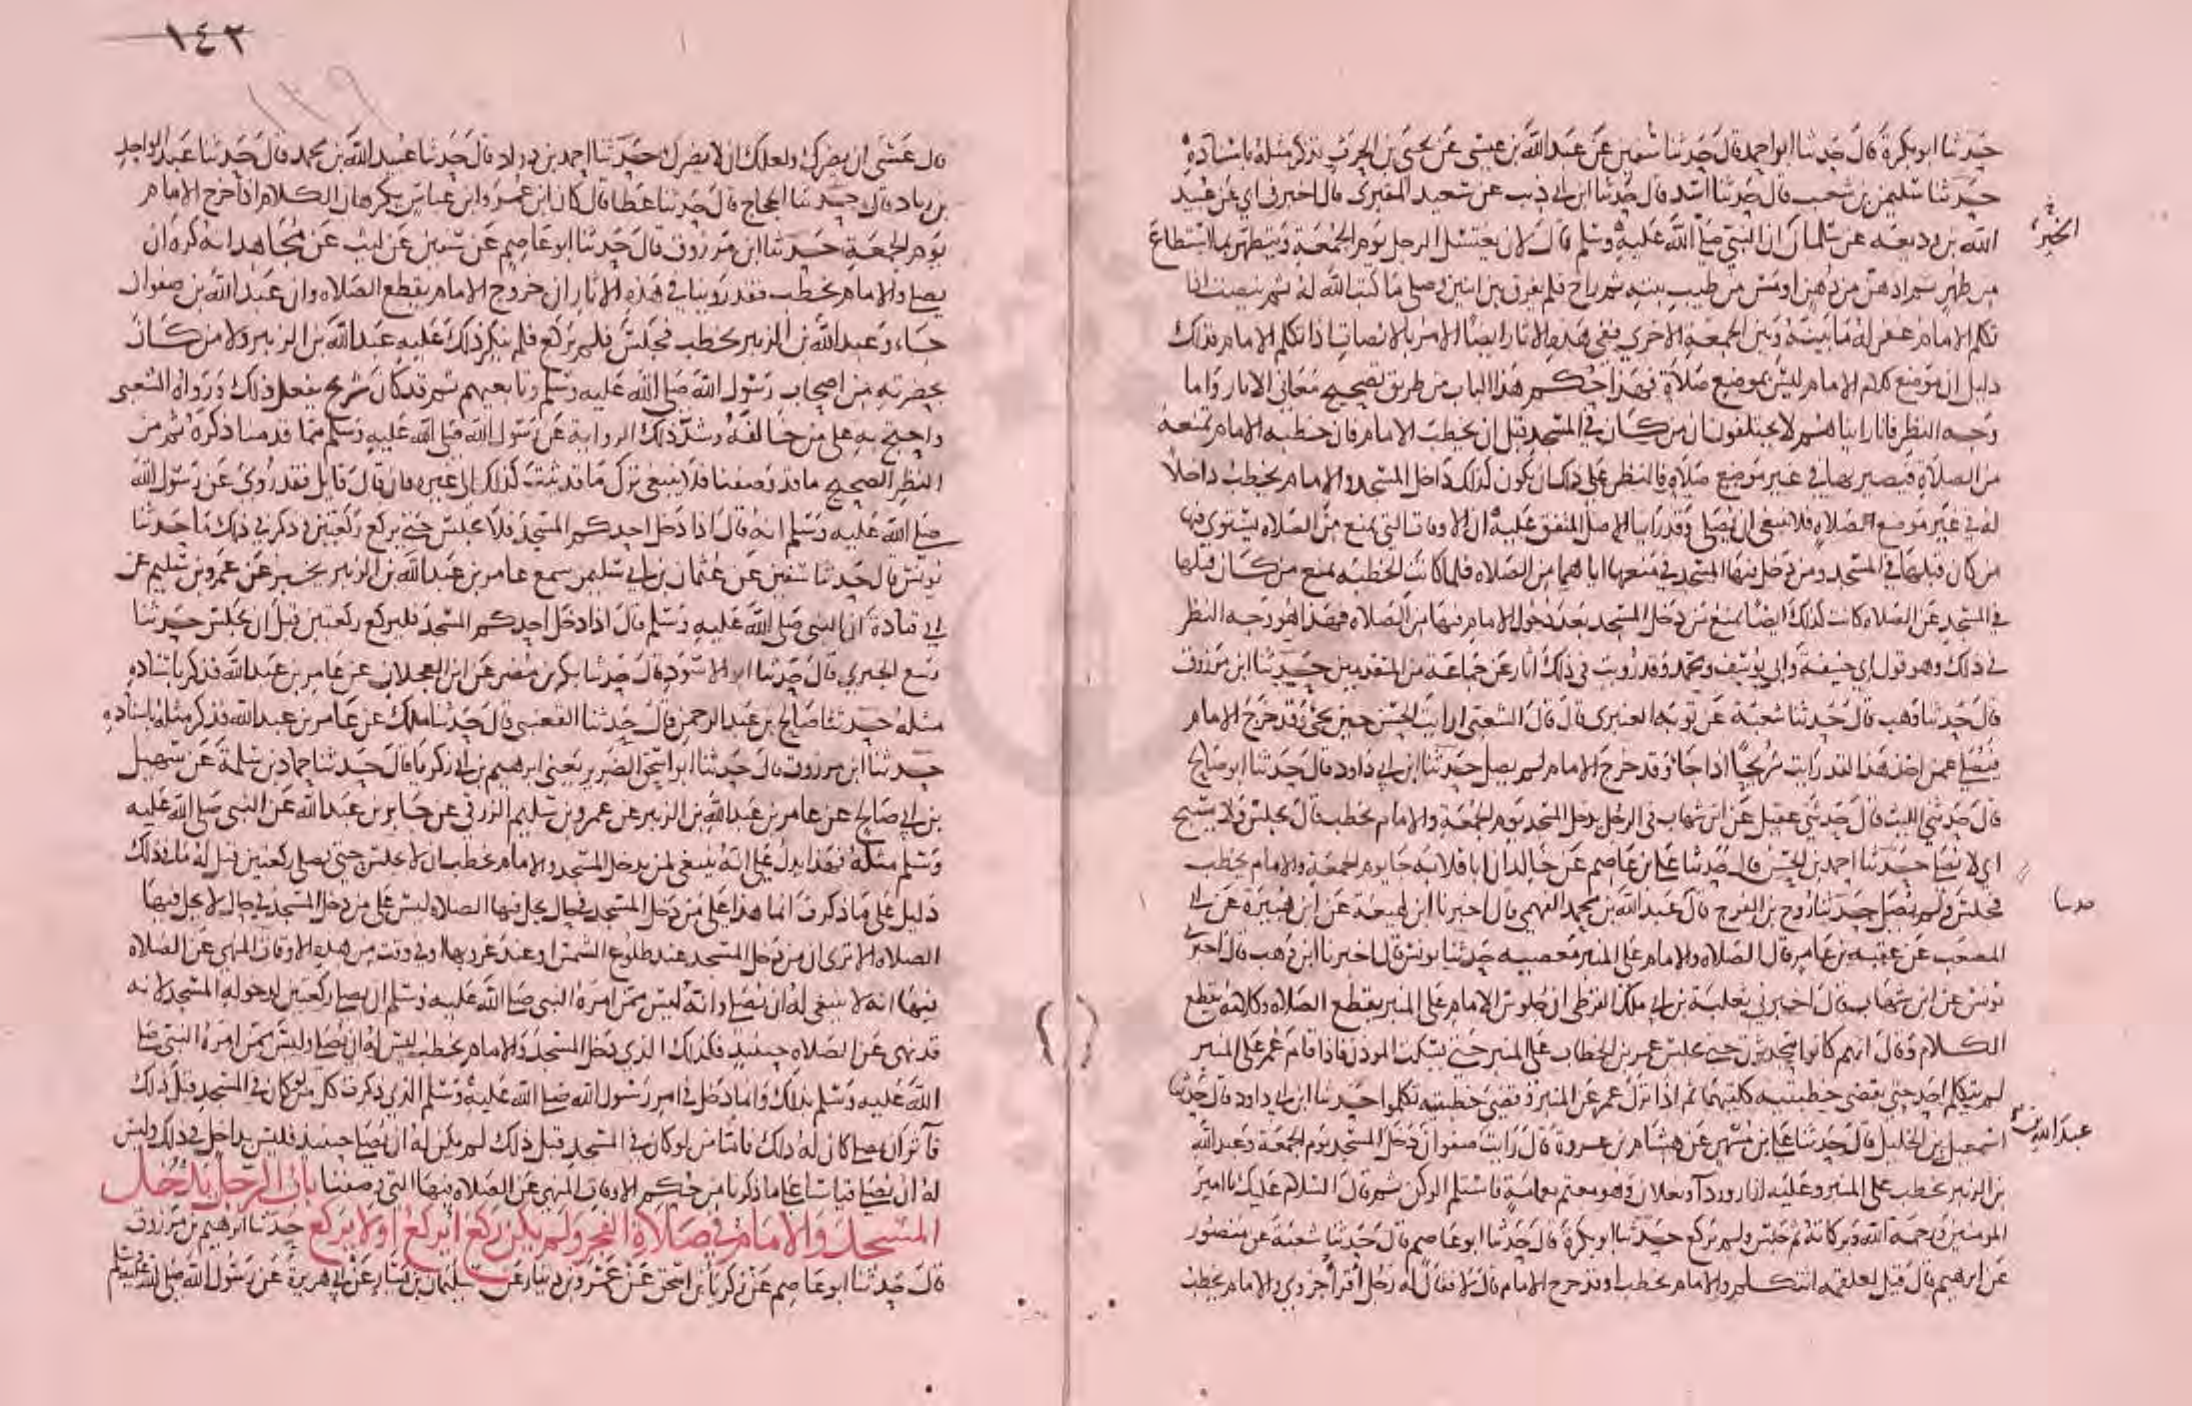 حدثنا ابو بكرة قال حدثنا ابو احمد قال حدثنا سفين عن عبد الله بن عيسى عن يحيى بن الحرث فذكر مثله باسناده
حدثنا سليمن بن شعيب قال حدثنا اسد قال حدثنا ابن ابي ذيب عن سعيد المقبري قال اخبرني ابي عن عبيد
الله بن وديعه عن سلمان ان النبي صلى الله عليه وسلم قال لان يغتسل الرجل يوم الجمعة ويتطهر بما استطاع
من طهر ثم ادهن من دهن او مس من طيب بيته ثم راح فلم يفرق بين اثنين وصلى ما كتب الله له ثم ينصت اذا
تكلم الامام غفر له ما بينه وبين الجمعة الاخرى ففي هذه الاثار ايضا الامر بالانصات اذا تكلم الامام فذلك
دليل ان موضع كلام الامام ليس بموضع صلاة فهذا حكم هذا الباب من طريق تصحيح معاني الاثار واما
وجه النظر فانا راينا هم لا يختلفون ان من كان في المسجد قبل ان يخطب الامام فان خطبه الامام تمنعه
من الصلاة فيصير بها في غير موضع صلاة فالنظر على ذلك ان يكون كذلك داخل المسجد والامام يخطب داخلا
له في غير موضع الصلاه فلا ينبغي ان يصلي وقد راينا الاصل المتفق عليه ان الاوقات التي تمنع من الصلاه يستوى فيها
من كان قبلها في المسجد ومن دخل فيها المسجد في منعها اياهما من الصلاه فلما كانت الخطبه تمنع من كان قبلها
في المسجد عن الصلاه كانت كذلك ايضا تمنع من دخل المسجد بعد دخول الامام فيها من الصلاه فهذا هو وجه النظر
في ذلك وهو قول ابي حنيفة وابي يوسف ومحمد وقد رويت في ذلك اثار عن جماعة من المتقدمين حدثنا ابن مرزوق
قال حدثنا وهب قال حدثنا شعبة عن توبه العنبري قال قال الشعبي ارايت الحسن حين يجيء وقد خرج الامام
فيصلي عمن اخذ هذا لقد رايت شريحا اذا جا وقد خرج الامام لم يصل حدثنا ابن ابي داود قال حدثنا ابو صالح
قال حدثني الليث قال حدثني عقيل عن ابن شهاب في الرجل يدخل المسجد يوم الجمعة والامام يخطب قال يجلس ولا يسبح
اي لا يصلي حدثنا احمد بن الحسن قال حدثنا علي بن عاصم عن خالد ان ابا قلابه جا يوم الجمعة والامام يخطب
فجلس ولم يصل حدثنا روح بن الفرج قال عبد الله بن محمد الفهمي قال اخبرنا ابن لهيعة عن ابن هبيرة عن ابي
المصعب عن عقبه بن عامر قال الصلاه والامام على المنبر معصيه حدثنا يونس قال اخبرنا ابن وهب قال اخبرني
يونس عن ابن شهاب قال اخبرني ثعلبة بن ابي ملك القرظي ان جلوس الامام على المنبر يقطع الصلاه وكلامه يقطع
الكلام وقال انهم كانوا يتحدثون حين يجلس عمر بن الخطاب على المنبر حتى يسكت الموذن فاذا قام عمر على المنبر
لم يتكلم احد حتى يقضي خطبتيه كلتيهما ثم اذا نزل عمر عن المنبر وقضى خطبتيه تكلموا حدثنا ابن ابي داود قال حدثنا
اسمعيل بن الخليل قال حدثنا علي بن مسهر عن هشام بن عروة قال رايت صفوان دخل المسجد يوم الجمعة وعبد الله
بن الزبير يخطب على المنبر وعليه ازار وردآ ونعلان وهو معتم بعمامة فاستلم الركن ثم قال السلام عليك يا امير
المومنين ورحمة الله وبركاته ثم جلس ولم يركع حدثنا ابو بكرة قال حدثنا ابو عاصم قال حدثنا شعبة عن منصور
عن ابرهيم قال قيل لعلقمه اتتكلم والامام يخطب او قد خرج الامام قال لا فقال له رجل اقرا جزوي والامام يخطب
الخير
حدثنا
عبد الله بن
١٤٢
١٣٩
قال عسى ان يضرك ولعلك ان لا يضرك حدثنا احمد بن داود قال حدثنا عبيد الله بن محمد قال حدثنا عبد الواحد
بن زياد قال حدثنا الحجاج قال حدثنا عطا قال كان ابن عمر وابن عباس يكرهان الكلام اذا خرج الامام
يوم الجمعة حدثنا ابن مرزوق قال حدثنا ابو عاصم عن سفين عن ليث عن مجاهد انه كره ان
يصلي والامام يخطب فقد روينا في هذه الاثار ان خروج الامام يقطع الصلاه وان عبد الله بن صفوان
جاء وعبد الله بن الزبير يخطب فجلس فلم يركع فلم ينكر ذلك عليه عبد الله بن الزبير ولا من كان
بحضرته من اصحاب رسول الله صلى الله عليه وسلم وتابعيهم ثم قد كان شريح يفعل ذلك ورواه الشعبي
واحتج به على من خالفه وشد ذلك الرواية عن رسول الله صلى الله عليه وسلم مما قدمنا ذكره ثم من
النظر الصحيح ما قد وصفنا فلا ينبغي ترك ما قد ثبت كذلك الى غيره فان قال قايل فقد روي عن رسول الله
صلى الله عليه وسلم انه قال اذا دخل احدكم المسجد فلا يجلس حتى يركع ركعتين وذكر في ذلك ما حدثنا
يونس قال حدثنا سفين عن عثمان بن ابي سليمن سمع عامر بن عبد الله بن الزبير يخبر عن عمرو بن سليم عن
ابي قتادة ان النبي صلى الله عليه وسلم قال اذا دخل احدكم المسجد فليركع ركعتين قبل ان يجلس حدثنا
ربيع الجيزي قال حدثنا ابو الاسود قال حدثنا بكر بن مضر عن ابن العجلان عن عامر بن عبد الله فذكر باسناده
مثله حدثنا صالح بن عبد الرحمن قال حدثنا القعنبي قال حدثنا ملك عن عامر بن عبد الله فذكر مثله باسناده
حدثنا ابن مرزوق قال حدثنا ابو اسحق الضرير يعني ابرهيم بن ابي زكريا قال حدثنا حماد بن سلمة عن سهيل
بن ابي صالح عن عامر بن عبد الله بن الزبير عن عمرو بن سليم الزرقي عن جابر بن عبد الله عن النبي صلى الله عليه
وسلم مثله فهذا يدل على انه ينبغي لمن يدخل المسجد والامام يخطب ان لا يجلس حتى يصلي ركعتين قيل له ما في ذلك
دليل على ما ذكرت انما هذا على من دخل المسجد في حال يحل فيها الصلاه ليس على من دخل المسجد في حال لا يحل فيها
الصلاه الا ترى ان من دخل المسجد عند طلوع الشمس او عند غروبها او في وقت من هذه الاوقات المنهي عن الصلاه
فيها انه لا ينبغي له ان يصلي وانه ليس ممن امره النبي صلى الله عليه وسلم ان يصلي ركعتين لدخوله المسجد لانه
قد نهي عن الصلاه حينيذ فكذلك الذي دخل المسجد والامام يخطب ليس له ان يصلي وليس ممن امره النبي صلى
الله عليه وسلم بذلك وانما دخل في امر رسول الله صلى الله عليه وسلم الذي ذكرت كل من لو كان في المسجد قبل ذلك
فآثر ان يصلي كان له ذلك فاما من لو كان في المسجد قبل ذلك لم يكن له ان يصلي حينيذ فليس بداخل في ذلك وليس
له ان يصلي قياسا على ما ذكرنا من حكم الاوقات المنهي عن الصلاه فيها التي وصفنا باب الرجل يدخل
المسجد والامام في صلاة الفجر ولم يكن ركع ايركع او لا يركع حدثنا ابرهيم بن مرزوق
قال حدثنا ابو عاصم عن زكريا بن اسحق عن عمرو بن دينار عن سليمان بن يسار عن ابي هريرة عن رسول الله صلى الله عليه وسلم